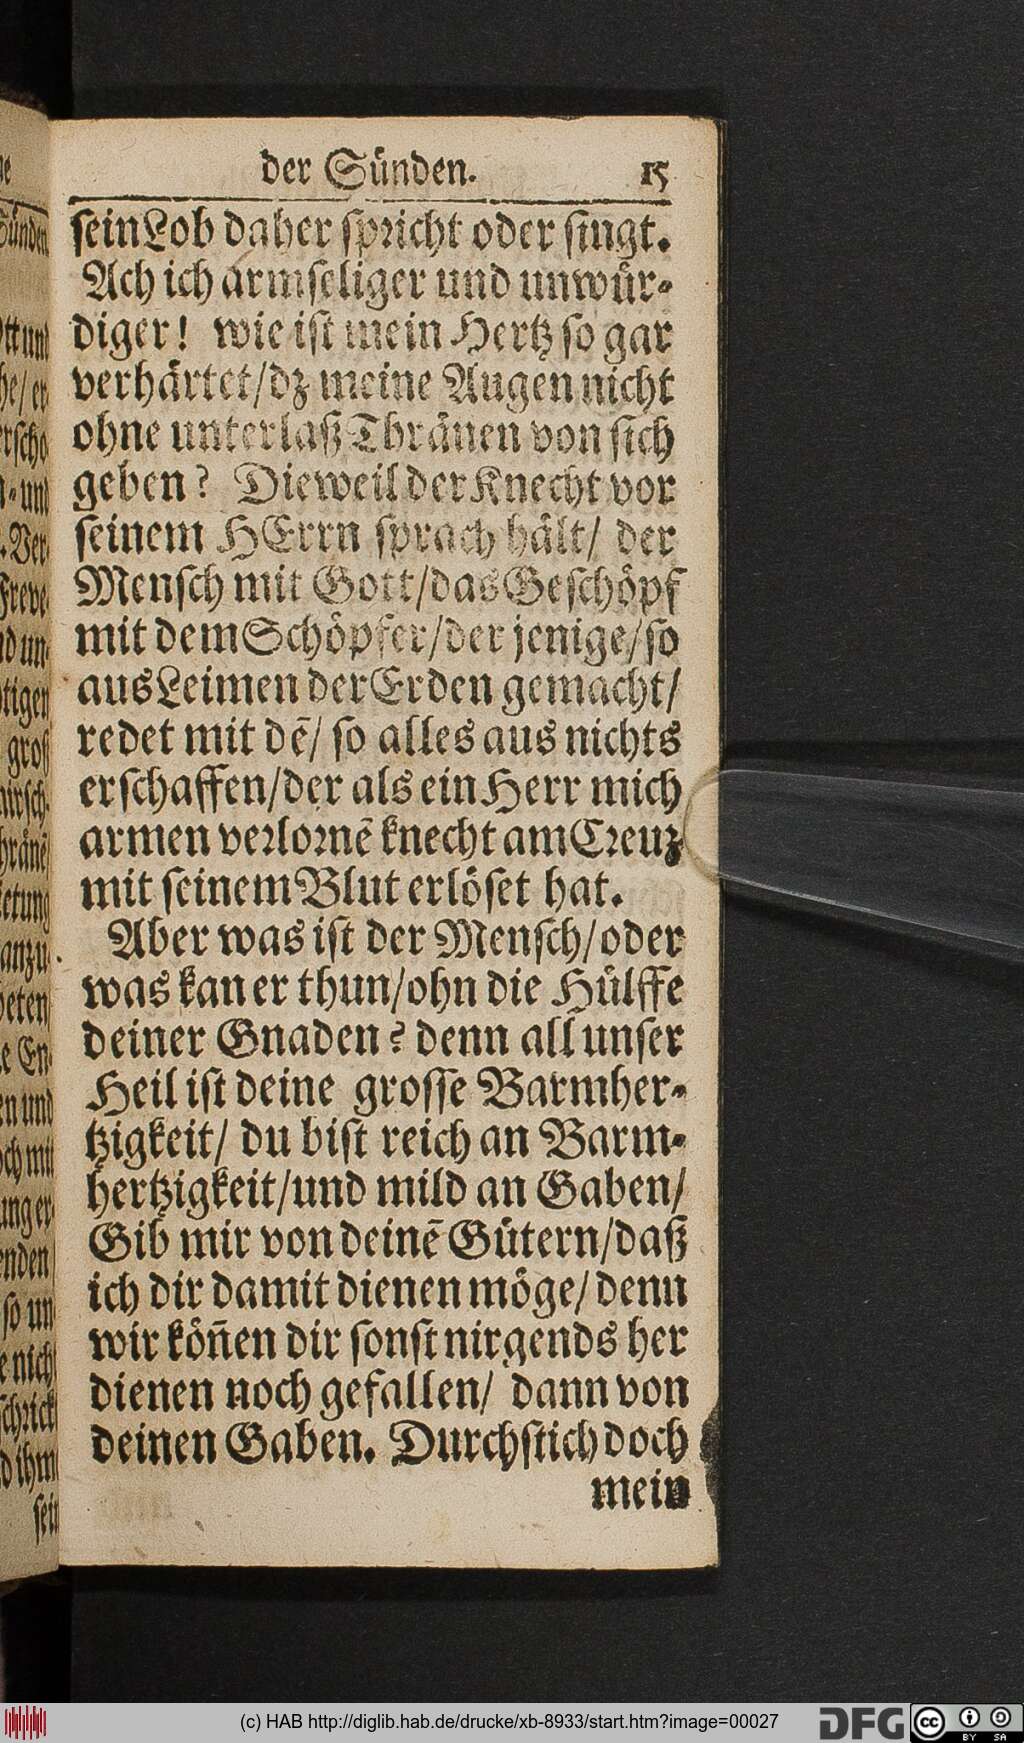 der Sünden. 15
sein Lob daher spricht oder singt.
Ach ich armseliger und unwür-
diger! wie ist mein Hertz so gar
verhärtet/dz meine Augen nicht
ohne unterlaß Thränen von sich
geben? Dieweil der Knecht vor
seinem HErrn sprach hält/ der
Mensch mit Gott/das Geschöpf
mit dem Schöpfer/der jenige/so
aus Leimen der Erden gemacht/
redet mit dē/ so alles aus nichts
erschaffen/der als ein Herr mich
armen verlornē knecht am Creuz
mit seinem Blut erlöset hat.
Aber was ist der Mensch/oder
was kan er thun/ohn die Hülffe
deiner Gnaden? denn all unser
Heil ist deine grosse Barmher-
tzigkeit/ du bist reich an Barm-
hertzigkeit/und mild an Gaben/
Gib mir von deinē Gütern/daß
ich dir damit dienen möge/ denn
wir köñen dir sonst nirgends her
dienen noch gefallen/ dann von
deinen Gaben. Durchstich doch
mein
(c) HAB http://diglib.hab.de/drucke/xb-8933/start.htm?image=00027
DFG cc BY SA